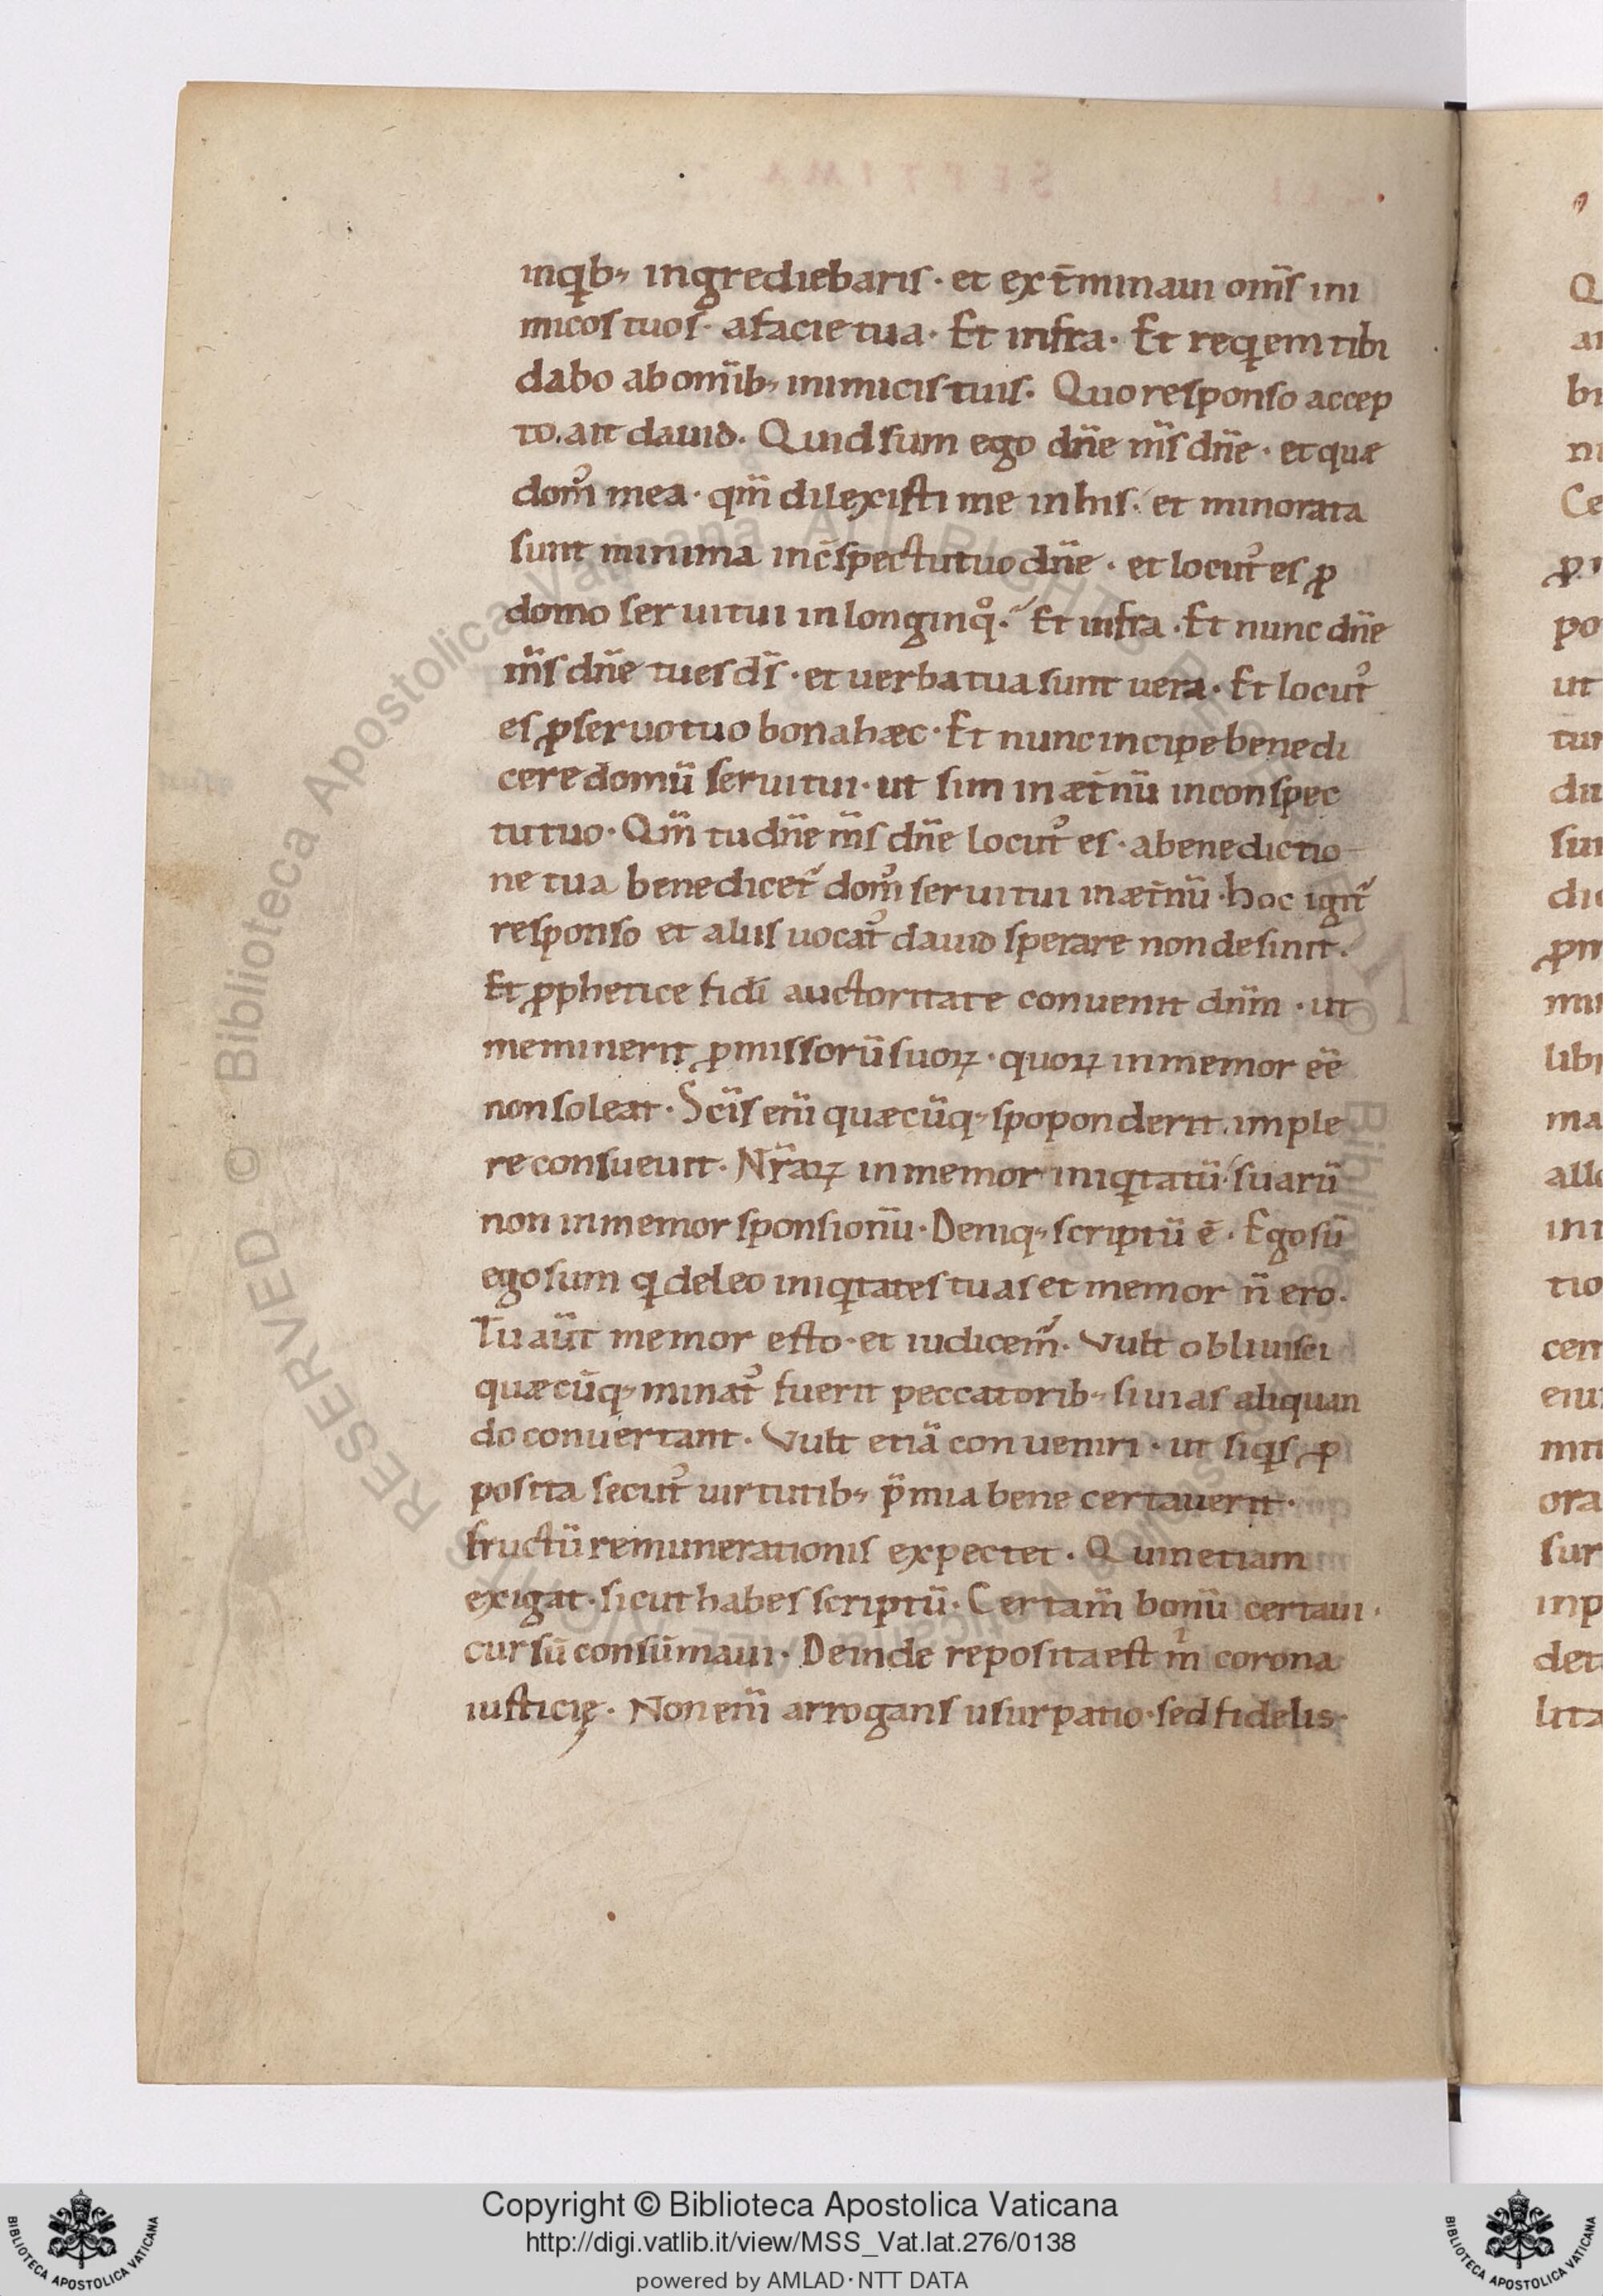 inqib; ingrediebaris · et ext̄minaui om̄s ini
micos tuos · afacie tua · Et infra · Et reqiem tibi
dabo abom̄ib; inimicis tuis · Quo responso accep
to. ait dauid · Quid sum ego dn̄e m̄s dn̄e · et quæ
domꝰ mea · qm̄ dilexisti me in his · et minorata
sunt minima inc̄spectu tuo dn̄e · et locutꝰ es ꝓ
domo serui tui in longinqͦ · Et infra · Et nunc dn̄e
m̄s dn̄e tu es ds̄ · et uerba tua sunt uera · Et locutꝰ
es ꝓ seruo tuo bona hæc · Et nunc incipe benedi
cere domū serui tui · ut sim in æt̄nū in conspec
tu tuo · Qm̄ tu dn̄e m̄s dn̄e locutꝰ es · a benedictio
ne tua benedicet᷑ domꝰ serui tui in æt̄nū · hoc igit᷑
responso et aliis uocatꝰ dauid sperare non desinit ·
Et ꝓphetice fidi auctoritate conuenit dn̄m · ut
meminerit ꝓmissorū suoꝝ · quoꝝ inmemor ēē
non soleat · Scis eni̅ quæcūq; spoponderit. imple
re consueuit · Nr̄aꝝ inmemor iniqitatū · suarū
non inmemor sponsionū · Deniq; scriptū ē · Ego sū
ego sum qi deleo iniqitates tuas et memor n̄ ero ·
Tu aūt memor esto · et iudicem᷑ · Vult obliuisci
quæcūq; minatꝰ fuerit peccatorib; si uias aliquan
do conuertant · Vult etiā conueniri · ut siqis ꝓ
posita secutꝰ uirtutib; p̄mia bene certauerit ·
fructū remunerationis expectet · Quin etiam
exigat · sicut habes scriptū · Certam̄ bonū certaui ·
cursū consūmaui · Deinde reposita est m̍ corona
iusticię · Non eni̅ arrogans usurpatio · sed fidelis
Copyright © Biblioteca Apostolica Vaticana
http://digi.vatlib.it/view/MSS_Vat.lat.276/0138
powered by AMLAD · NTT DATA
BIBLIOTECA APOSTOLICA VATICANA
BIBLIOTECA APOSTOLICA VATICANA